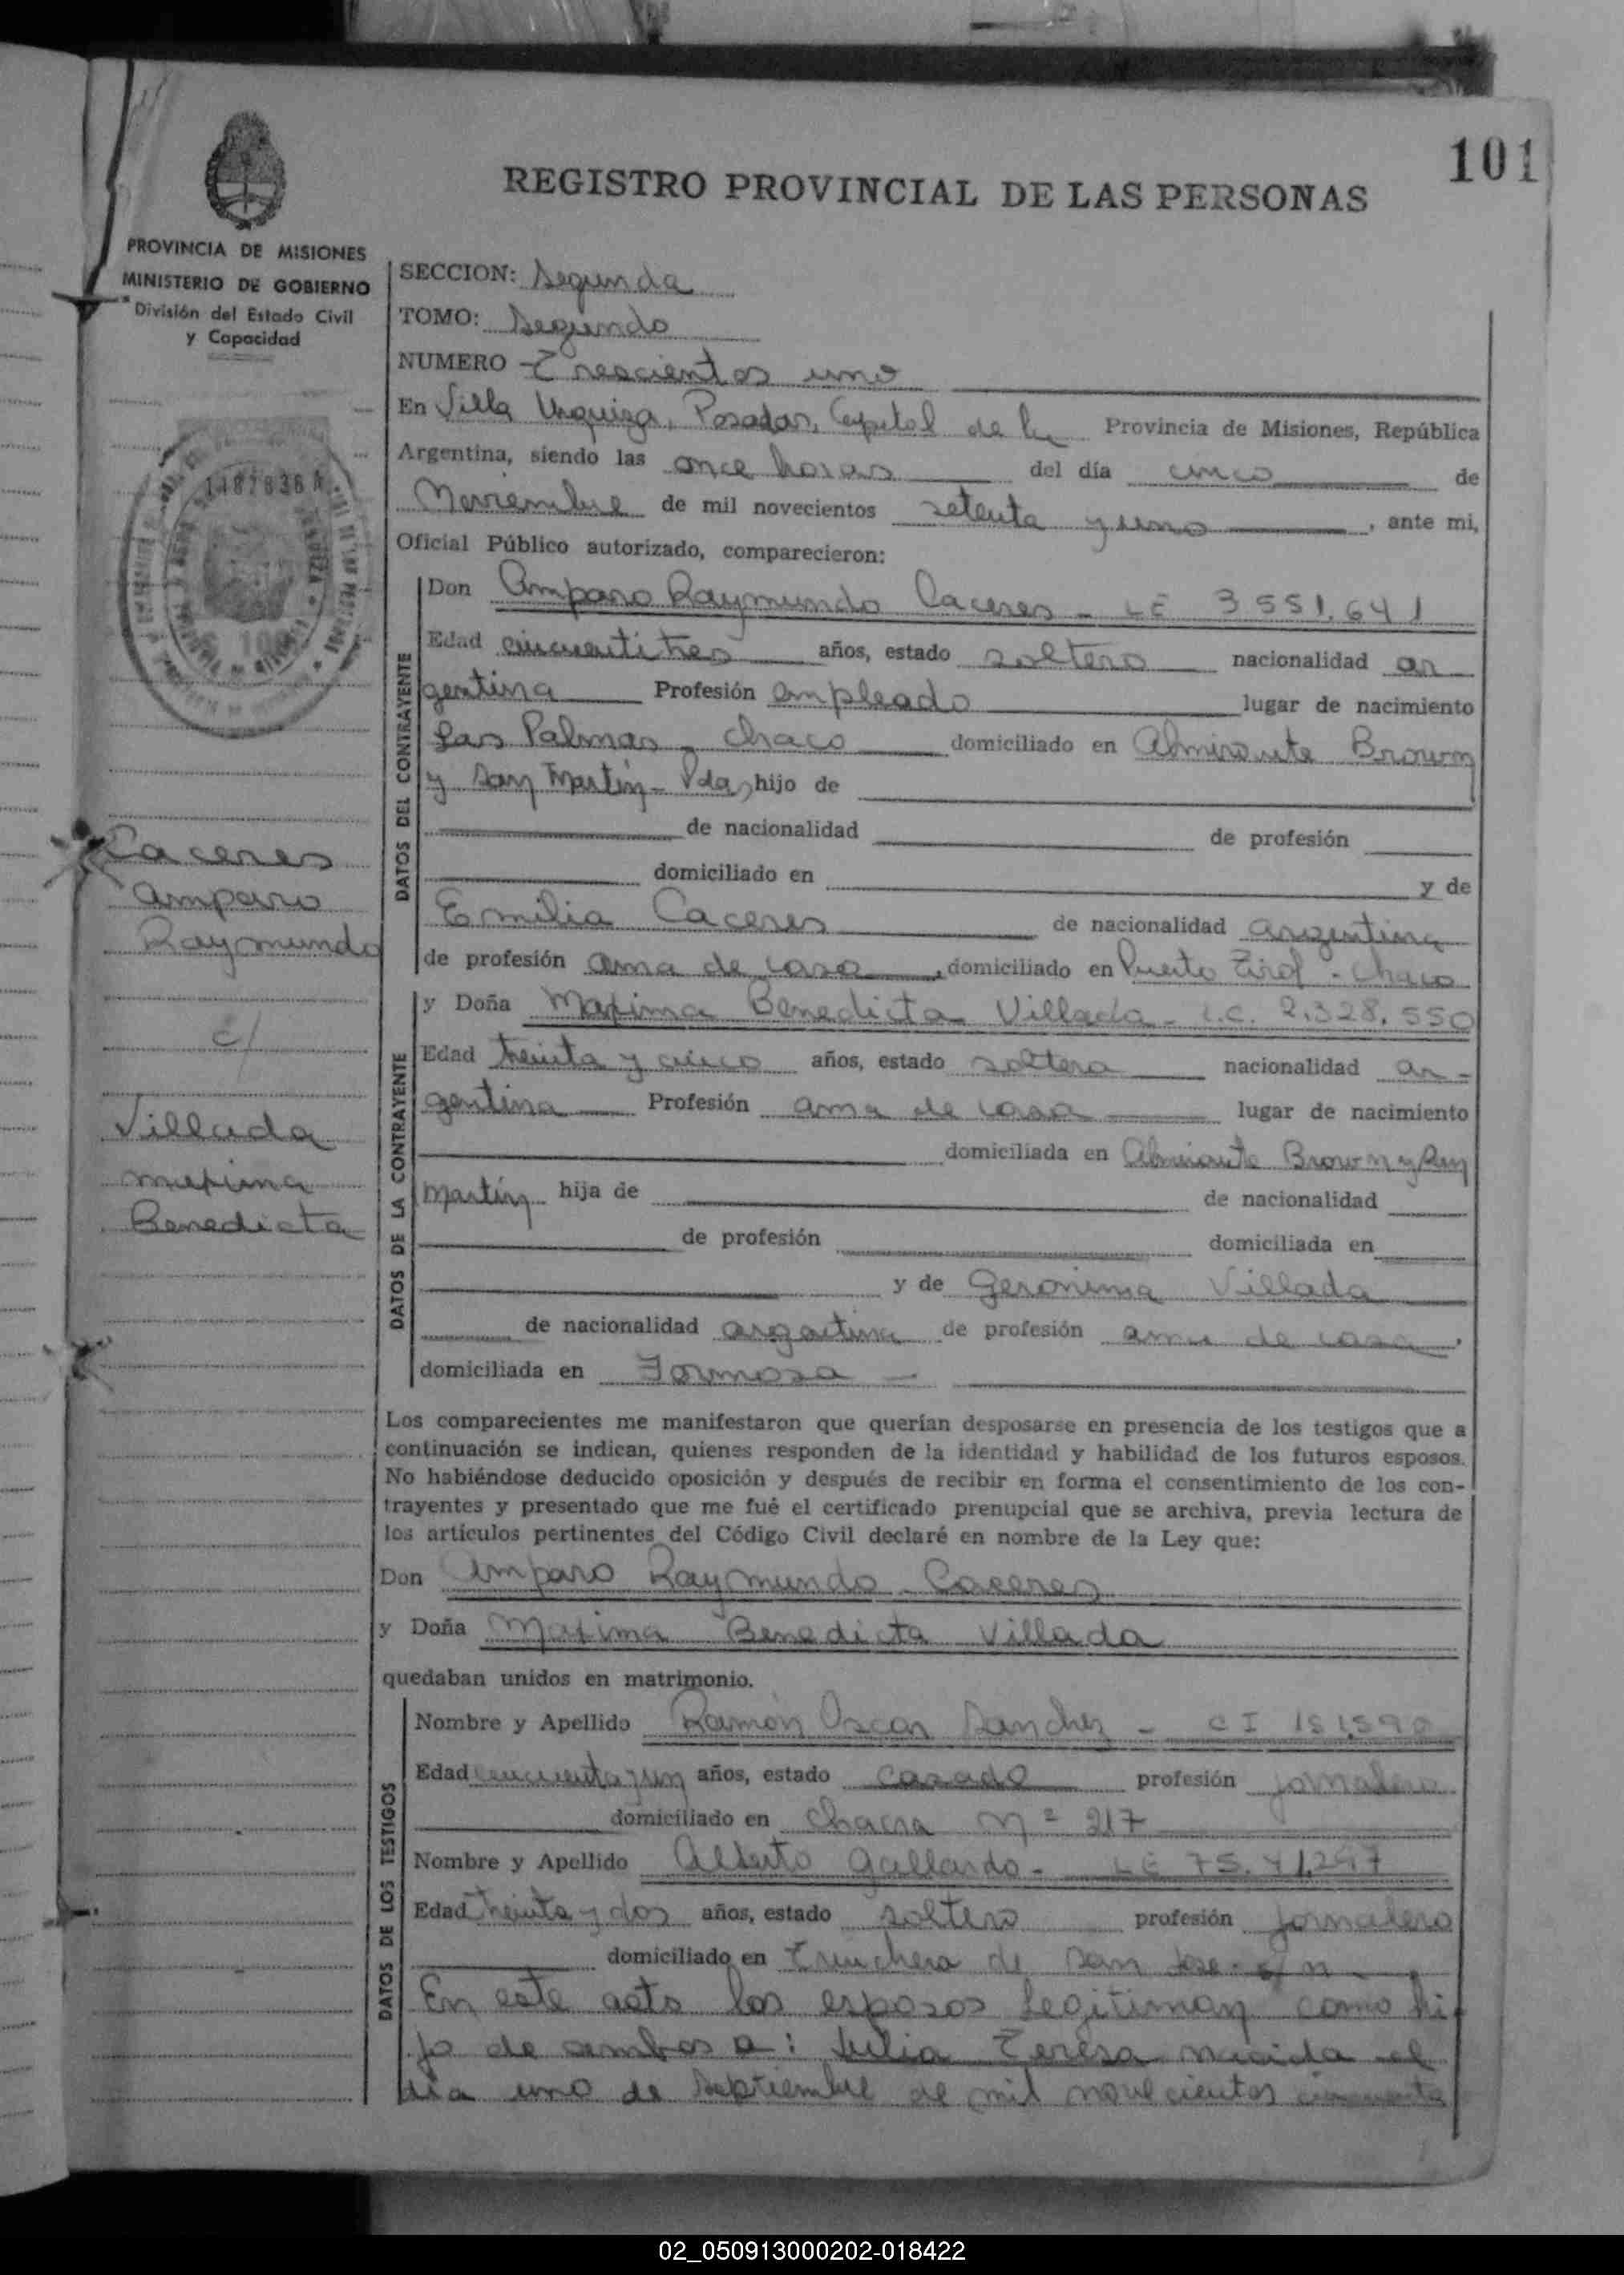 101
REGISTRO PROVINCIAL DE LAS PERSONAS
PROVINCIA DE MISIONES
MINISTERIO DE GOBIERNO
División del Estado Civil
y Capacidad
SECCION: Segunda
TOMO: Segundo
NUMERO Trescientos uno
En Villa Urquiza, Posadas, Capital de la Provincia de Misiones, República
Argentina, siendo las once horas del día cinco de
Noviembre de mil novecientos setenta y uno, ante mi,
Oficial Público autorizado, comparecieron:
DATOS DEL CONTRAYENTE
Don Amparo Raymundo Caceres - LE 3551.641
Edad cincuentitres años, estado soltero nacionalidad ar
gentina Profesión empleado lugar de nacimiento
Las Palmas - Chaco domiciliado en Almirante Brown
y San Martín - Pdas, hijo de
de nacionalidad de profesión
domiciliado en y de
Emilia Caceres de nacionalidad argentina
de profesión ama de casa, domiciliado en Puerto Tirol - Chaco
Caceres
Amparo
Raymundo
c/
Villada
Maxima
Benedicta
DATOS DE LA CONTRAYENTE
y Doña Maxima Benedicta Villada - L.C. 2.328.550
Edad treinta y cinco años, estado soltera nacionalidad ar-
gentina Profesión ama de casa lugar de nacimiento
domiciliada en Almirante Brown y San
Martín hija de de nacionalidad
de profesión domiciliada en
y de Geronima Villada
de nacionalidad argentina de profesión ama de casa,
domiciliada en Formosa -
Los comparecientes me manifestaron que querían desposarse en presencia de los testigos que a
continuación se indican, quienes responden de la identidad y habilidad de los futuros esposos.
No habiéndose deducido oposición y después de recibir en forma el consentimiento de los con-
trayentes y presentado que me fué el certificado prenupcial que se archiva, previa lectura de
los artículos pertinentes del Código Civil declaré en nombre de la Ley que:
Don Amparo Raymundo Caceres
y Doña Maxima Benedicta Villada
quedaban unidos en matrimonio.
DATOS DE LOS TESTIGOS
Nombre y Apellido Ramón Oscar Sanchez - CI
Edad cincuenta y un años, estado casado profesión jornalero
domiciliado en Chacra Nº 217
Nombre y Apellido Alberto Gallardo - LE
Edad treinta y dos años, estado soltero profesión jornalero
domiciliado en Trinchera de San Jose - s/n -
En este acto los esposos legitiman como hi
jo de ambos a: Julia Teresa nacida el
día uno de septiembre de mil novecientos cincuenta
02_050913000202-018422